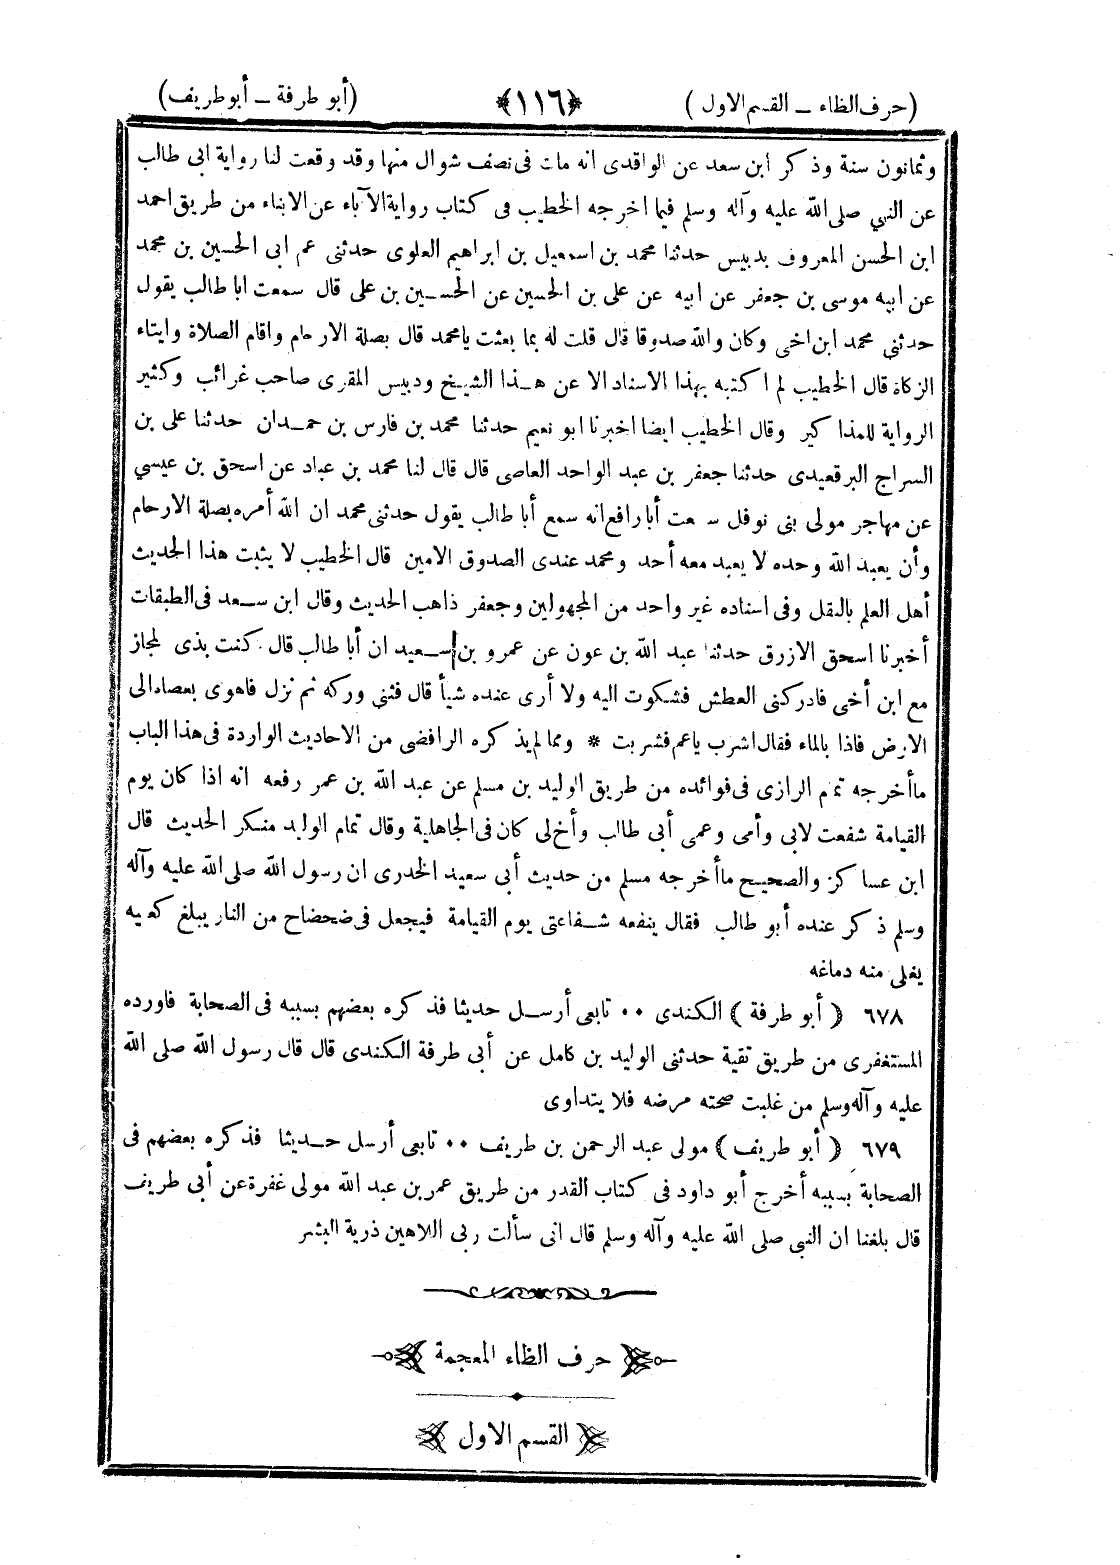 (حرف الظاء ــ القسم الاول) ﴿١١٦﴾ (أبو طرفة ــ أبوطريف)
وثمانون سنة وذكر ابن سعد عن الواقدى انه مات فى نصف شوال منها وقد وقعت لنا رواية ابى طالب
عن النبي صلى الله عليه وآله وسلم فيما اخرجه الخطيب فى كتاب رواية الآباء عن الابناء من طريق احمد
ابن الحسن المعروف بدبيس حدثنا محمد بن اسمعيل بن ابراهيم العلوى حدثنى عم ابى الحسين بن محمد
عن ابيه موسى بن جعفر عن ابيه عن على بن الحسين عن الحسين بن على قال سمعت ابا طالب يقول
حدثني محمد ابن اخى وكان والله صدوقا قال قلت له بما بعثت يامحمد قال بصلة الارحام واقام الصلاة وايتاء
الزكاة قال الخطيب لم اكتبه بهذا الاسناد الا عن هذا الشيخ ودبيس المقرى صاحب غرائب وكثير
الرواية للمذاكير وقال الخطيب ايضا اخبرنا ابو نعيم حدثنا محمد بن فارس بن حمدان حدثنا على بن
السراج البرقعيدى حدثنا جعفر بن عبد الواحد العاصى قال قال لنا محمد بن عباد عن اسحق بن عيسي
عن مهاجر مولى بنى نوفل سمعت أبا رافع انه سمع أبا طالب يقول حدثنى محمد ان الله أمره بصلة الارحام
وأن يعبد الله وحده لا يعبد معه أحد ومحمد عندى الصدوق الامين قال الخطيب لا يثبت هذا الحديث
أهل العلم بالنقل وفى اسناده غير واحد من المجهولين وجعفر ذاهب الحديث وقال ابن سعد فى الطبقات
أخبرنا اسحق الازرق حدثنا عبد الله بن عون عن عمرو بن سعيد ان أبا طالب قال كنت بذى لمجاز
مع ابن أخى فادركنى العطش فشكوت اليه ولا أرى عنده شيأ قال فثنى وركه ثم نزل فاهوى بعصاه الى
الارض فاذا بالماء فقال اشرب ياعم فشربت * ومما لم يذكره الرافضى من الاحاديث الواردة فى هذا الباب
ماأخرجه تمام الرازى فى فوائده من طريق الوليد بن مسلم عن عبد الله بن عمر رفعه انه اذا كان يوم
القيامة شفعت لابى وأمى وعمى أبى طالب وأخ لى كان فى الجاهلية وقال تمام الوليد منكر الحديث قال
ابن عساكر والصحيح ماأخرجه مسلم من حديث أبى سعيد الخدرى ان رسول الله صلى الله عليه وآله
وسلم ذكر عنده أبو طالب فقال ينفعه شفاعتى يوم القيامة فيجعل فى ضحضاح من النار يبلغ كعبيه
يغلى منه دماغه
٦٧٨ ﴿ أبو طرفة ﴾ الكندى ٠٠ تابعى أرسل حديثا فذكره بعضهم بسببه فى الصحابة فاورده
المستغفرى من طريق تقية حدثنى الوليد بن كامل عن أبى طرفة الكندى قال قال رسول الله صلى الله
عليه وآله وسلم من غلبت صحته مرضه فلا يتداوى
٦٧٩ ﴿ أبو طريف ﴾ مولى عبد الرحمن بن طريف ٠٠ تابعى أرسل حديثا فذكره بعضهم فى
الصحابة بسببه أخرج أبو داود فى كتاب القدر من طريق عمر بن عبد الله مولى غفرة عن أبى طريف
قال بلغنا ان النبى صلى الله عليه وآله وسلم قال انى سألت ربى اللاهين ذرية البشر
حرف الظاء المعجمة
القسم الاول